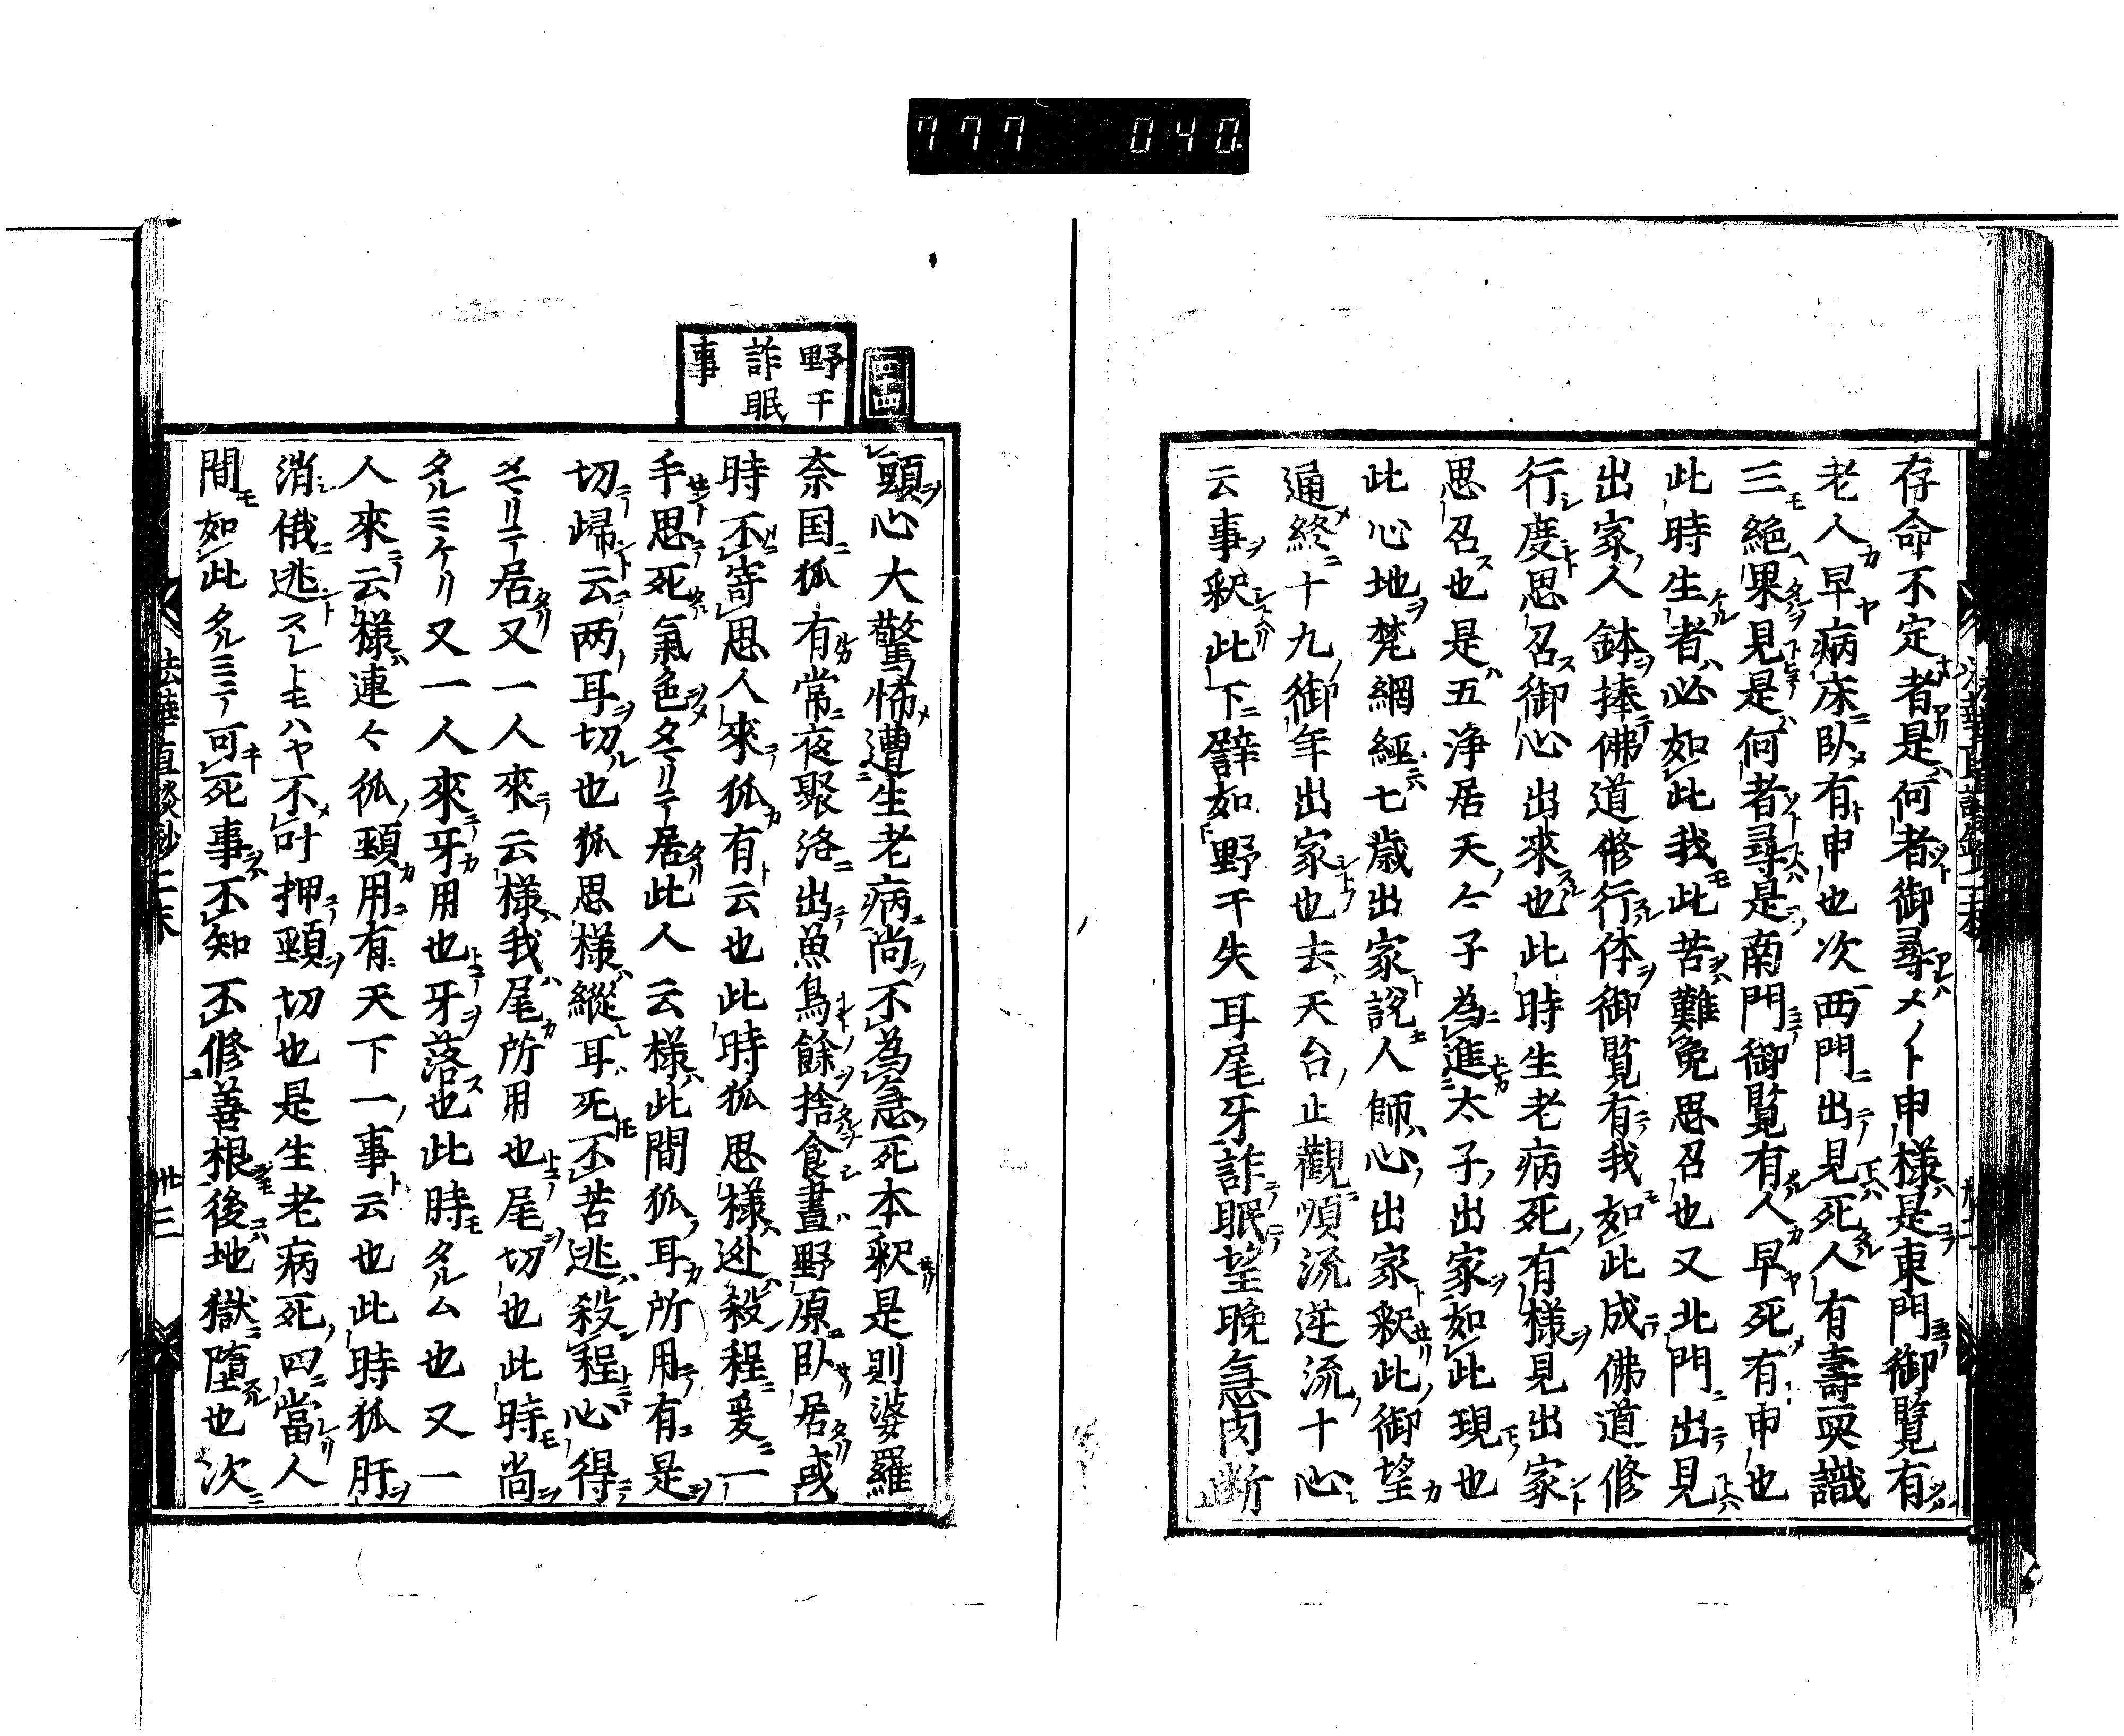 777 040
存命不定者是何者御尋メノト申様是東門御覧有
老人早病床臥有申也次西門出見死人有壽耎識
三絶果見是何者尋是南門御覧有人早死有申也
此時生者必如此我此苦難免思召也又北門出見
出家人鉢捧佛道修行体御覧有我如此成佛道修
行度思召御心出來也此時生老病死有様見出家
思召也是五浄居天々子為進太子出家如此現也
此心地梵網經七歳出家説人師心出家釈此御望
通終十九御年出家也去天台止觀順流逆流十心
云事釈此下譬如野干失耳尾牙詐眠望晩急肉断
四十四
野干
詐眠
事
頭心大驚怖遭生老病尚不為急死本釈是則婆羅
奈国狐有常夜聚洛出魚鳥餘捨食晝野原臥居或
時不寄思人來狐有云也此時狐思様迯殺程爰一
手思死氣色タマリテ居此人云様此間狐耳所用有是
切歸云两耳切也狐思様縦耳死不苦逃殺程心得
タマリテ居又一人來云様我尾所用也尾切也此時尚
タルミケリ又一人來牙用也牙落也此時タルム也又一
人來云様連々狐頸用有天下一事云也此時狐肝
消俄逃スレトモハヤ不叶押頸切也是生老病死四當人
間如此タルミテ可死事不知不修善根後地獄墮也次
法華直談鈔二末 卅三